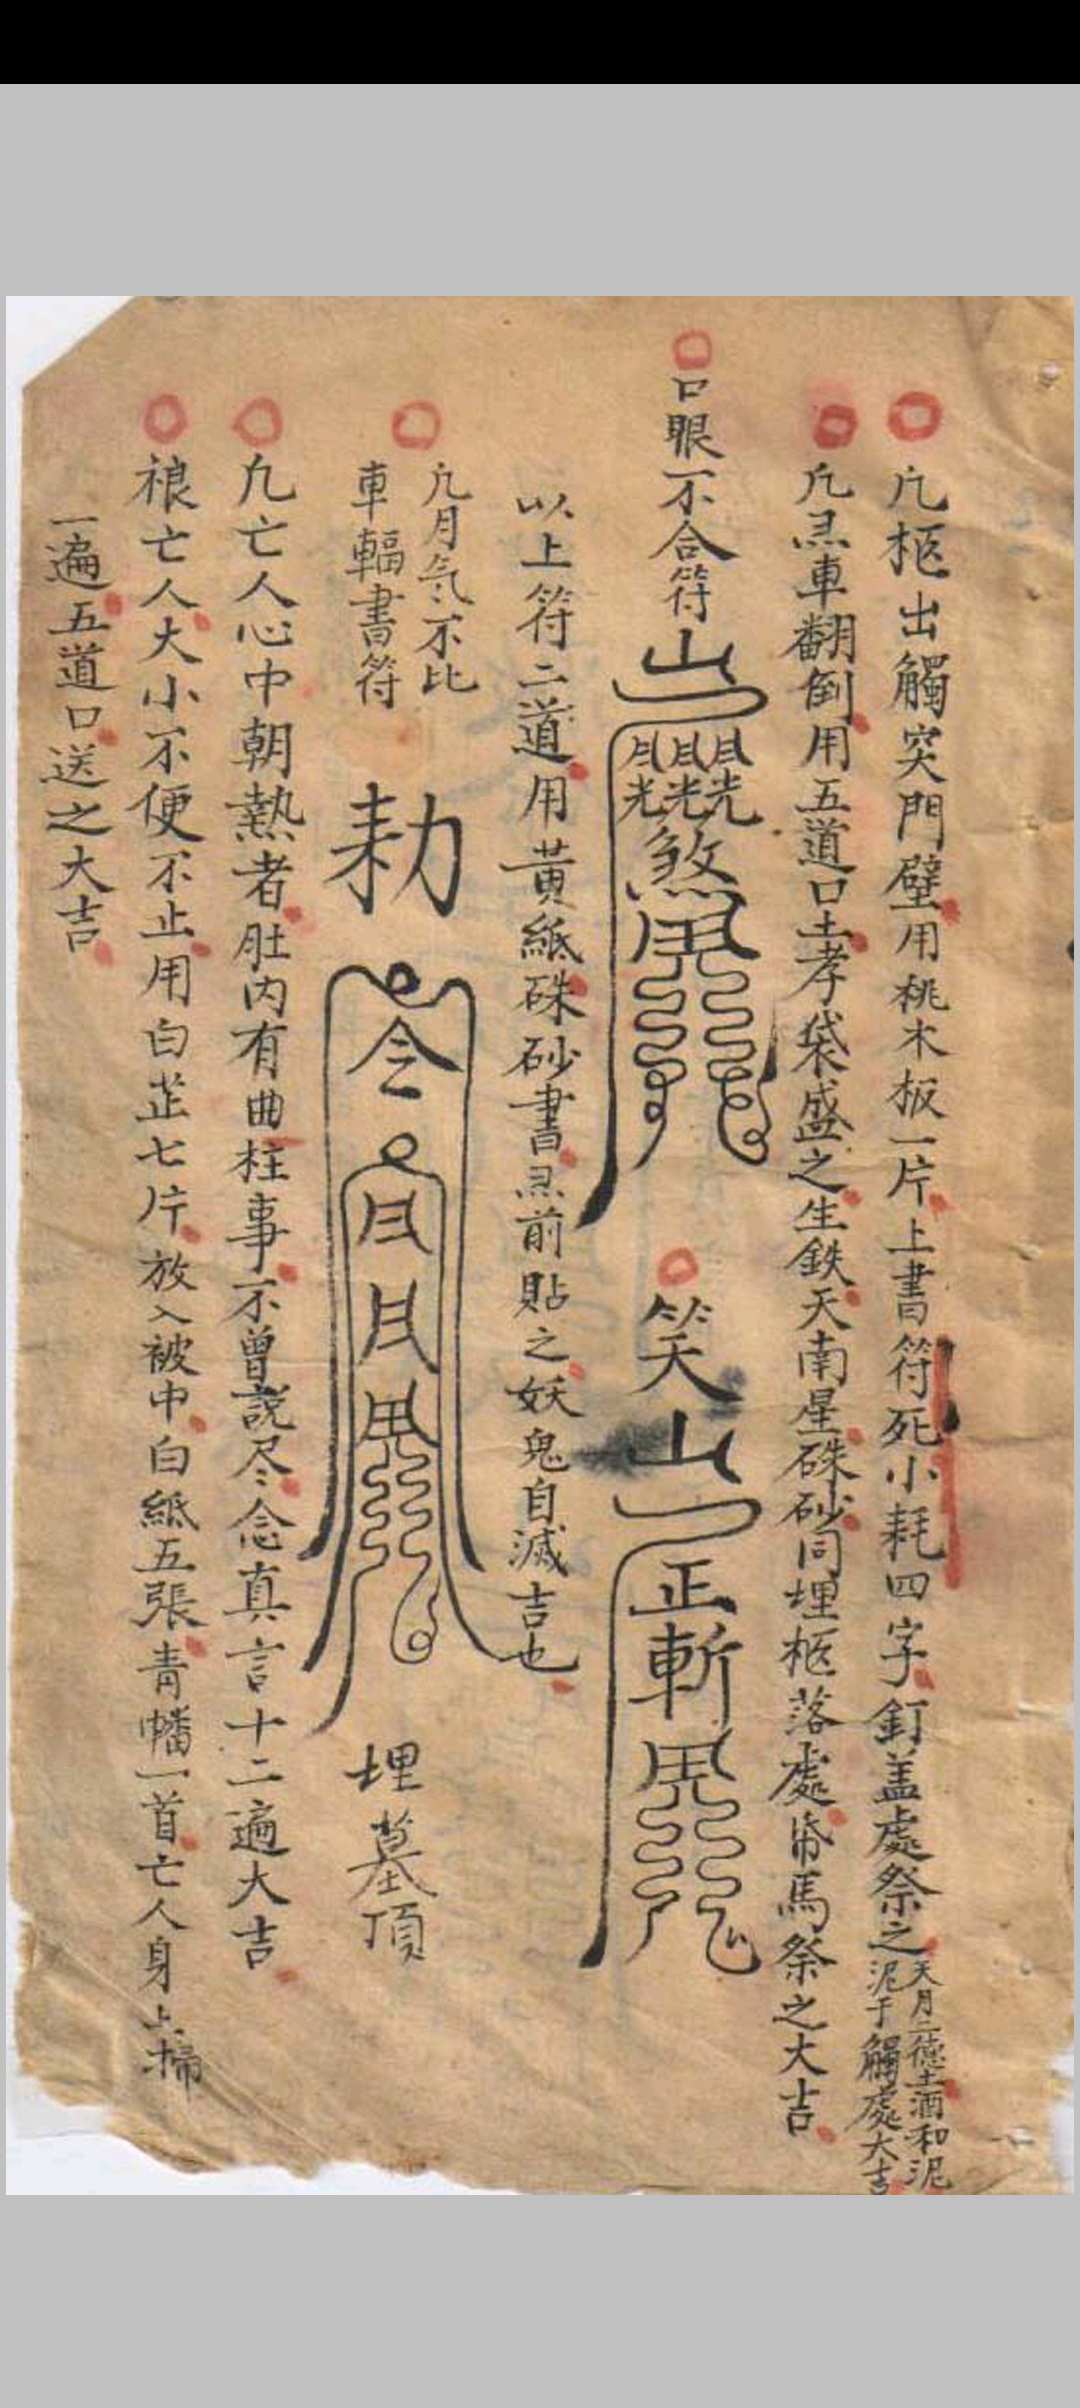 凣柩出觸突門壁用桃木板一片上書符死小耗四字釘盖處祭之
天月二德土酒和泥
泥于觸處大吉
凣灵車翻倒用五道口土孝袋盛之生鉄天南星硃砂同埋柩落處帋馬祭之大吉
口眼不合符
山
月月月
光光光
煞
笑
山
正斬
以上符二道用黃紙硃砂書灵前貼之妖鬼自滅吉也
凣月气不比
車輻書符
勅
令
月
月
埋墓頂
凣亡人心中朝熱者肚内有曲柱事不曾説尽念真言十二遍大吉
亡人大小不便不止用白芷七片放入被中白紙五張青幡一首亡人身上掃
一遍五道口送之大吉